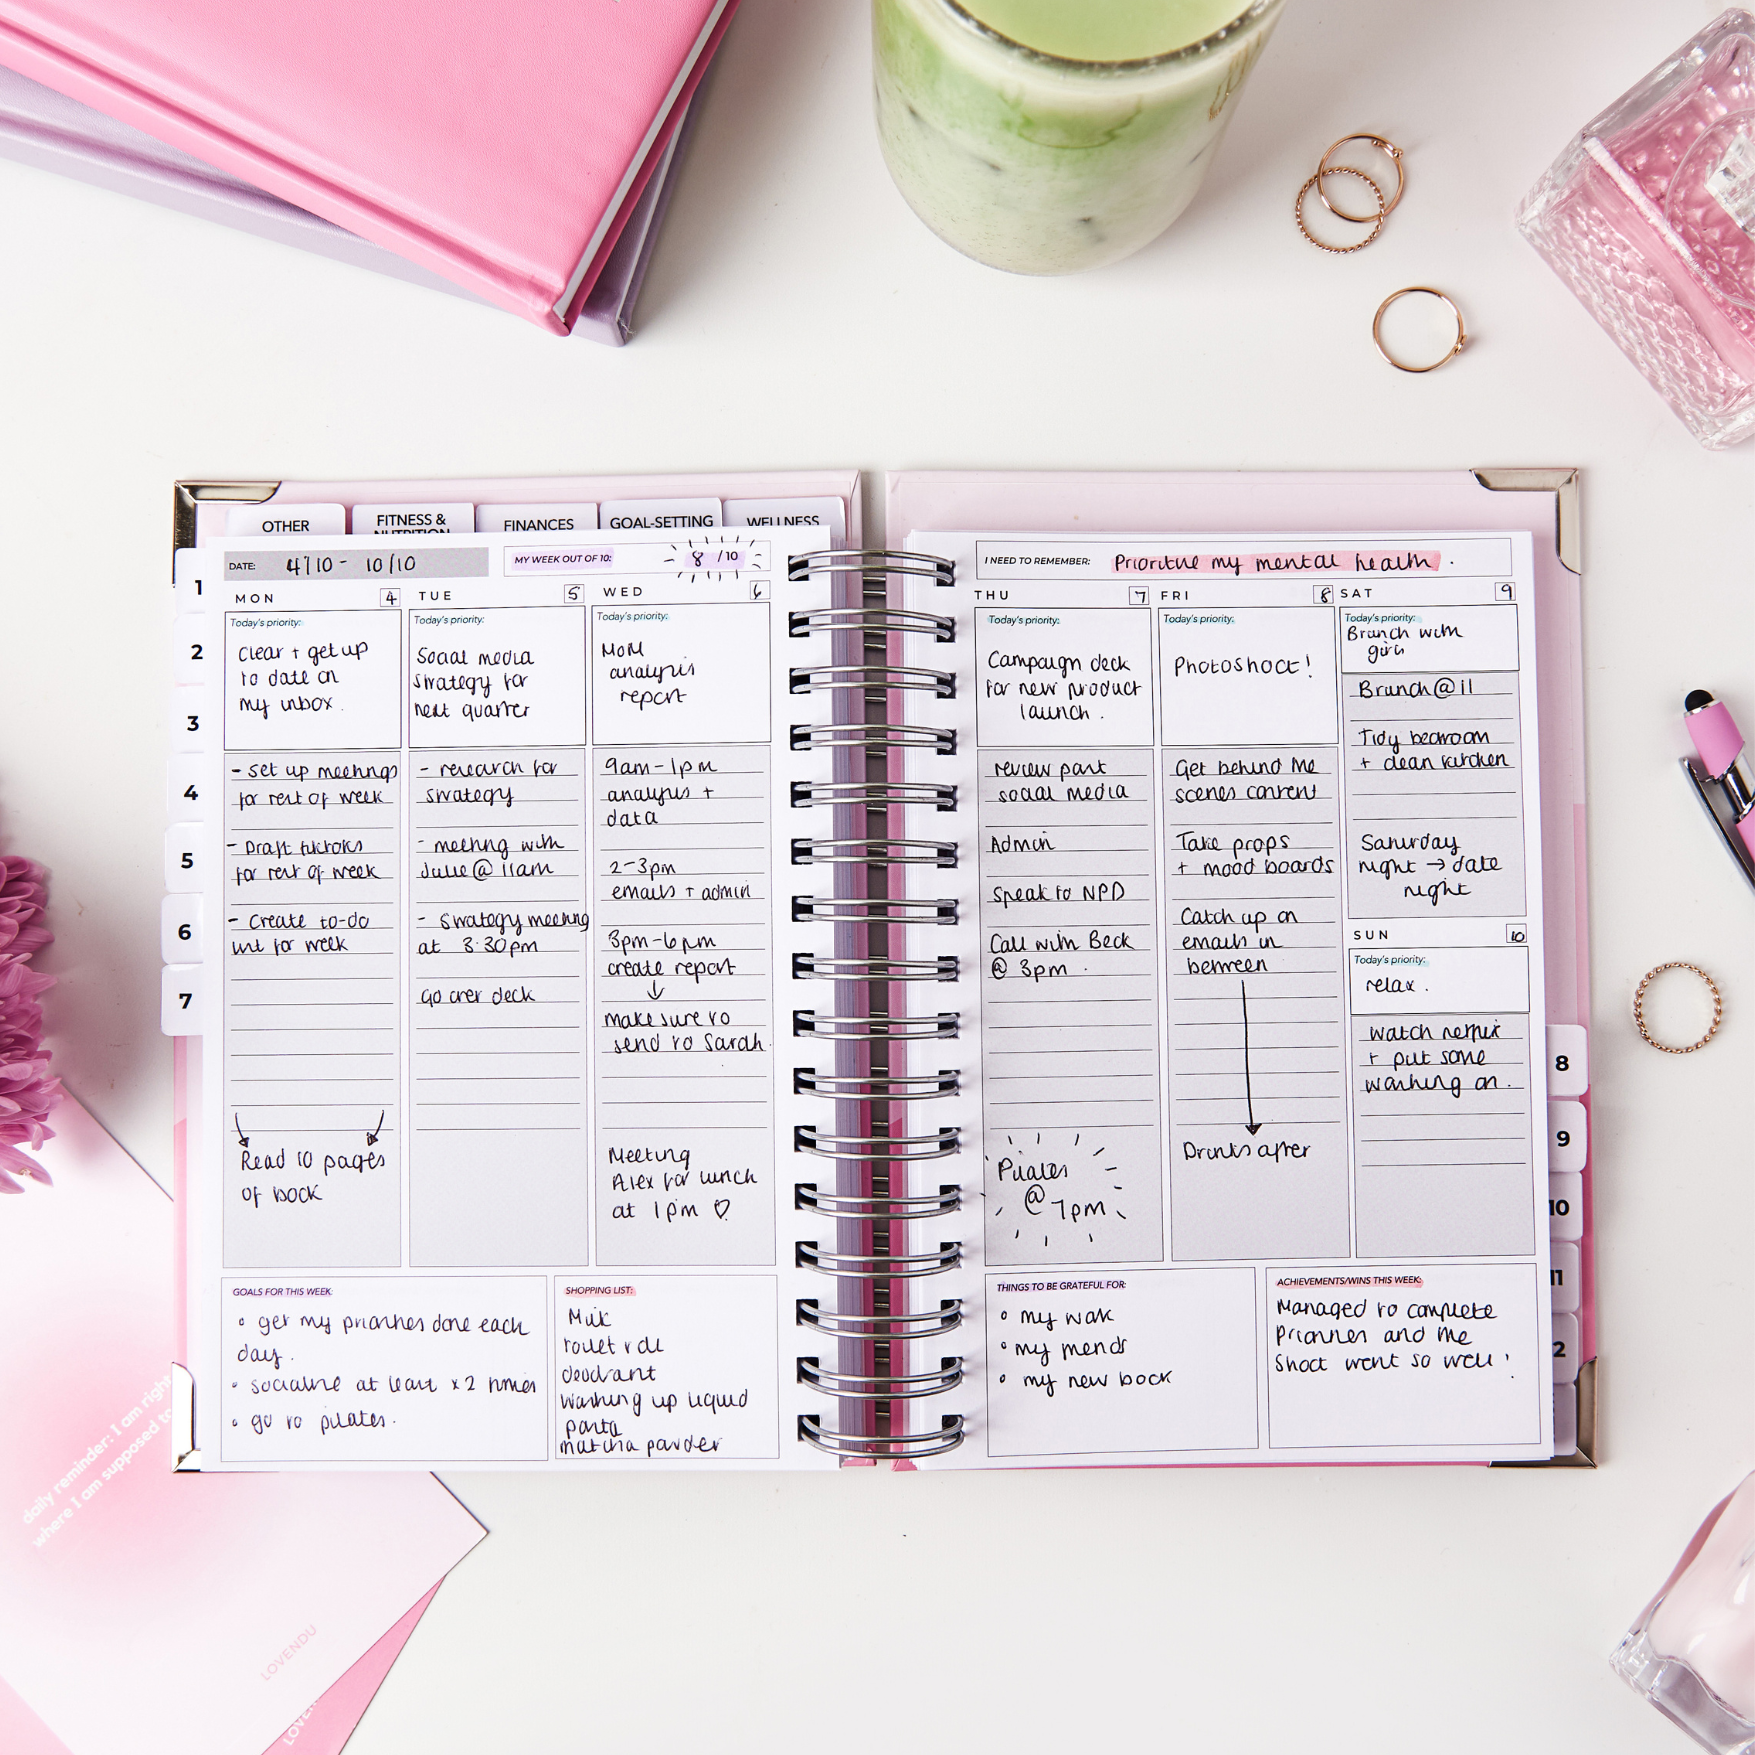 OTHER
FITNESS &
NUTRITION
FINANCES
GOAL-SETTING
WELLNESS
1
2
3
4
5
6
7
DATE: 4/10 - 10/10
MY WEEK OUT OF 10: 8 /10
MON 4
Today's priority:
Clear + get up
to date on
my inbox.
- Set up meetings
for rest of week
- Draft tiktoks
for rest of week
- Create to-do
list for week
Read 10 pages
of book
TUE 5
Today's priority:
Social media
strategy for
next quarter
- research for
strategy
- meeting with
Julie @ 11am
- Strategy meeting
at 3:30pm
Go over deck
WED 6
Today's priority:
MoM
analysis
report
9am-1pm
analysis +
data
2-3pm
emails + admin
3pm-6pm
create report
make sure to
send to Sarah.
Meeting
Alex for lunch
at 1pm ♡
GOALS FOR THIS WEEK:
• get my priorities done each
day.
• socialise at least x2 times
• go to pilates.
SHOPPING LIST:
Milk
toilet roll
deodrant
Washing up liquid
pasta
matcha powder
I NEED TO REMEMBER: Prioritise my mental health.
THU 7
Today's priority:
Campaign deck
for new product
launch.
review past
social media
Admin
Speak to NPD
Call with Beck
@ 3pm.
Pilates
@ 7pm
FRI 8
Today's priority:
Photoshoot!
Get behind the
scenes content
Take props
+ mood boards
Catch up on
emails in
between
Drinks after
SAT 9
Today's priority:
Brunch with
girls
Brunch @ 11
Tidy bedroom
+ clean kitchen
Saturday
night → date
night
SUN 10
Today's priority:
relax.
Watch netflix
+ put some
washing on.
THINGS TO BE GRATEFUL FOR:
• my work
• my friends
• my new book
ACHIEVEMENTS/WINS THIS WEEK:
Managed to complete
Priorities and the
Shoot went so well!
8
9
10
11
2
daily reminder: I am right
where I am supposed to
LOVENDU
LOVEN